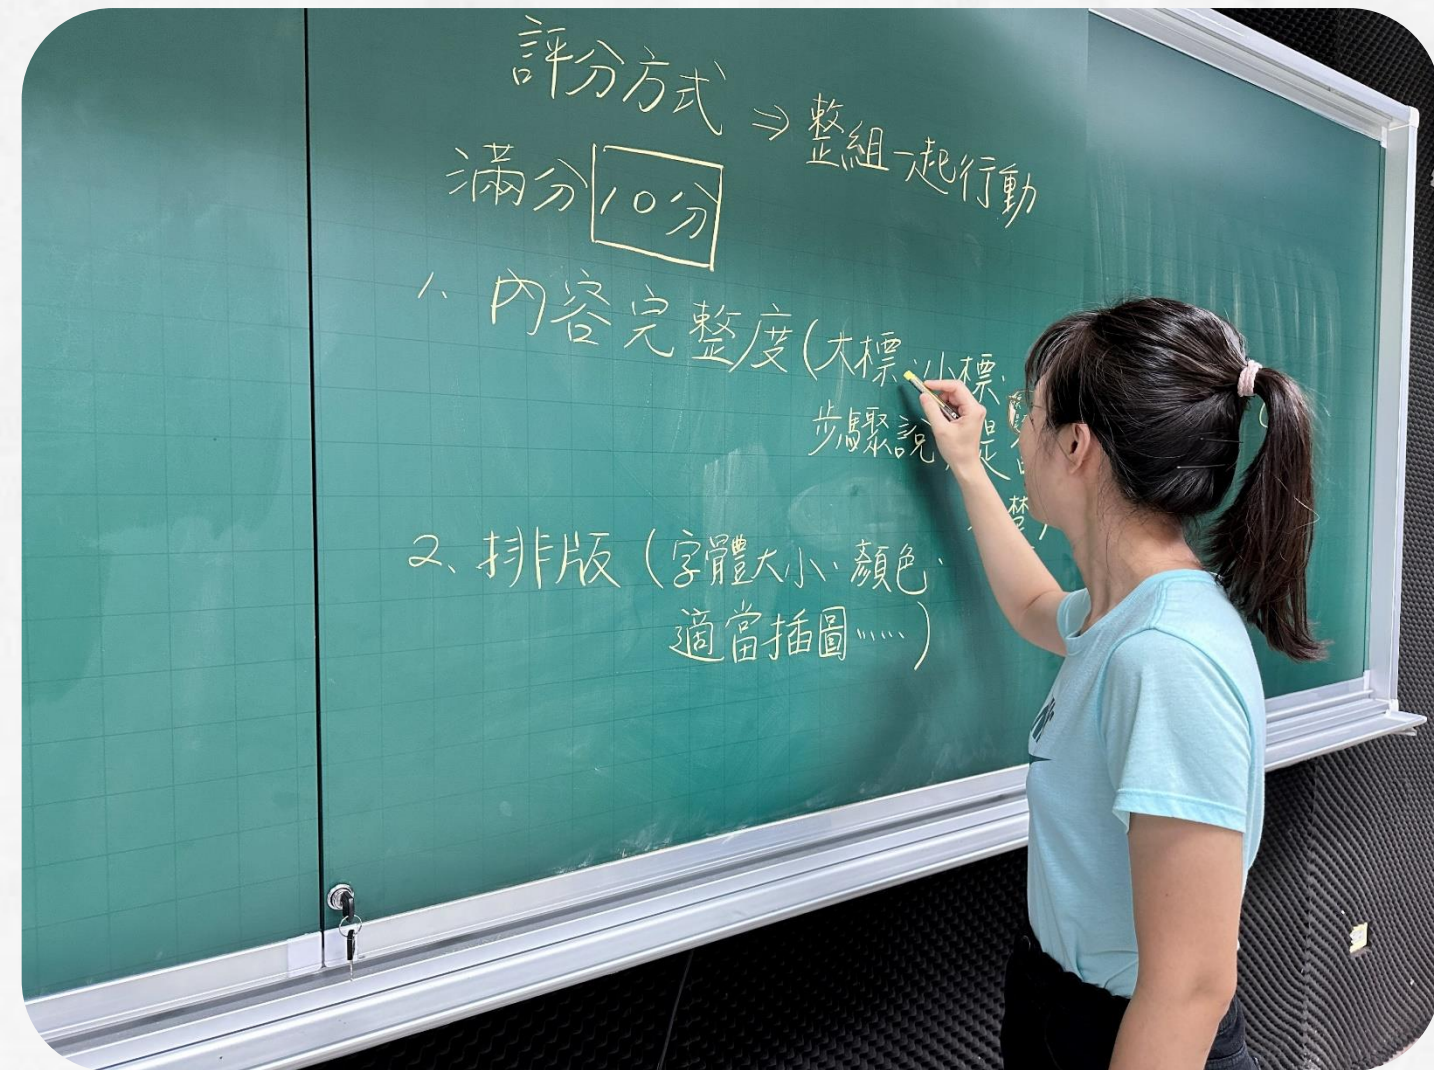 評分方式 ⇒ 整組一起行動
滿分 10分
1、內容完整度(大標、小標、
步驟說 是
楚)
2、排版(字體大小、顏色、
適當插圖……)